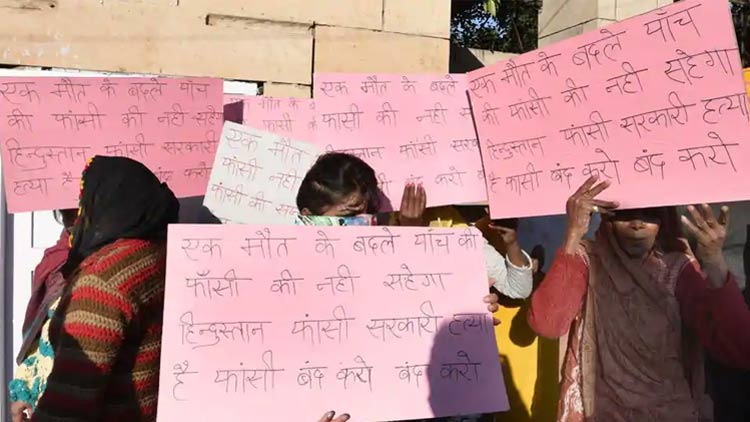 एक मौत के बदले पांच
की फांसी की नही सहेगा
हिन्दुस्तान फांसी सरकारी
हत्या है
एक मौत
फांसी नही
फांसी की
एक मौत के बदले
फांसी की नही
फांसी
बंद करो
एक मौत के बदले पाँच
की फांसी की नही सहेगा
हिन्दुस्तान फांसी सरकारी हत्या
है फांसी बंद करो बंद करो
एक मौत के बदले पांच की
फाँसी की नही सहेगा
हिन्दुस्तान फांसी सरकारी हत्या
है फांसी बंद करो बंद करो